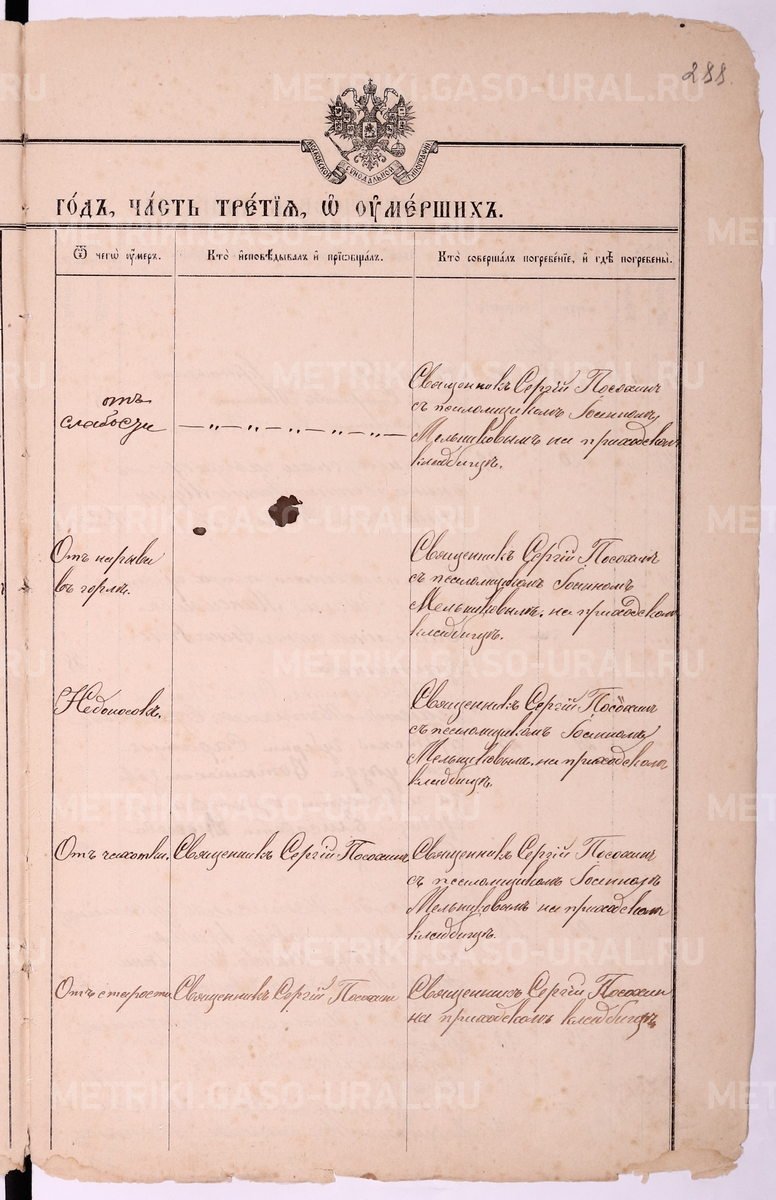 288.
МОСКОВСКОЙ СѴНОДАЛЬНОЙ ТИПОГРАФІИ
ГОДЪ, ЧА́СТЬ ТРЕ́ТІѦ, Ѽ ОУ҆МЕ́РШИХЪ.
Ѿ чегѡ̀ ᲂу҆́меръ.
Кто̀ и҆сповѣ́дывалъ и҆ прїѡбща́лъ.
Кто̀ соверша́лъ погребе́нїе, и҆ гдѣ̀ погребены̀.
отъ
слабости
— „ — „ — „ — „ — „ —
Священникъ Сергій Посохинъ
съ псаломщикомъ Іоанномъ
Мельниковымъ на приходскомъ
кладбищѣ.
Отъ нарыва
въ горлѣ.
Священникъ Сергій Посохинъ
съ псаломщикомъ Іоанномъ
Мельниковымъ, на приходскомъ
кладбищѣ.
Недоносокъ.
Священникъ Сергій Посохинъ
съ псаломщикомъ Іоанномъ
Мельниковымъ, на приходскомъ
кладбищѣ.
Отъ чахотки.
Священникъ Сергій Посохинъ
Священникъ Сергій Посохинъ
съ псаломщикомъ Іоанномъ
Мельниковымъ на приходскомъ
кладбищѣ.
Отъ старости
Священникъ Сергій Посохин
Священникъ Сергій Посохин
на приходскомъ кладбищѣ
METRIKI.GASO-URAL.RU